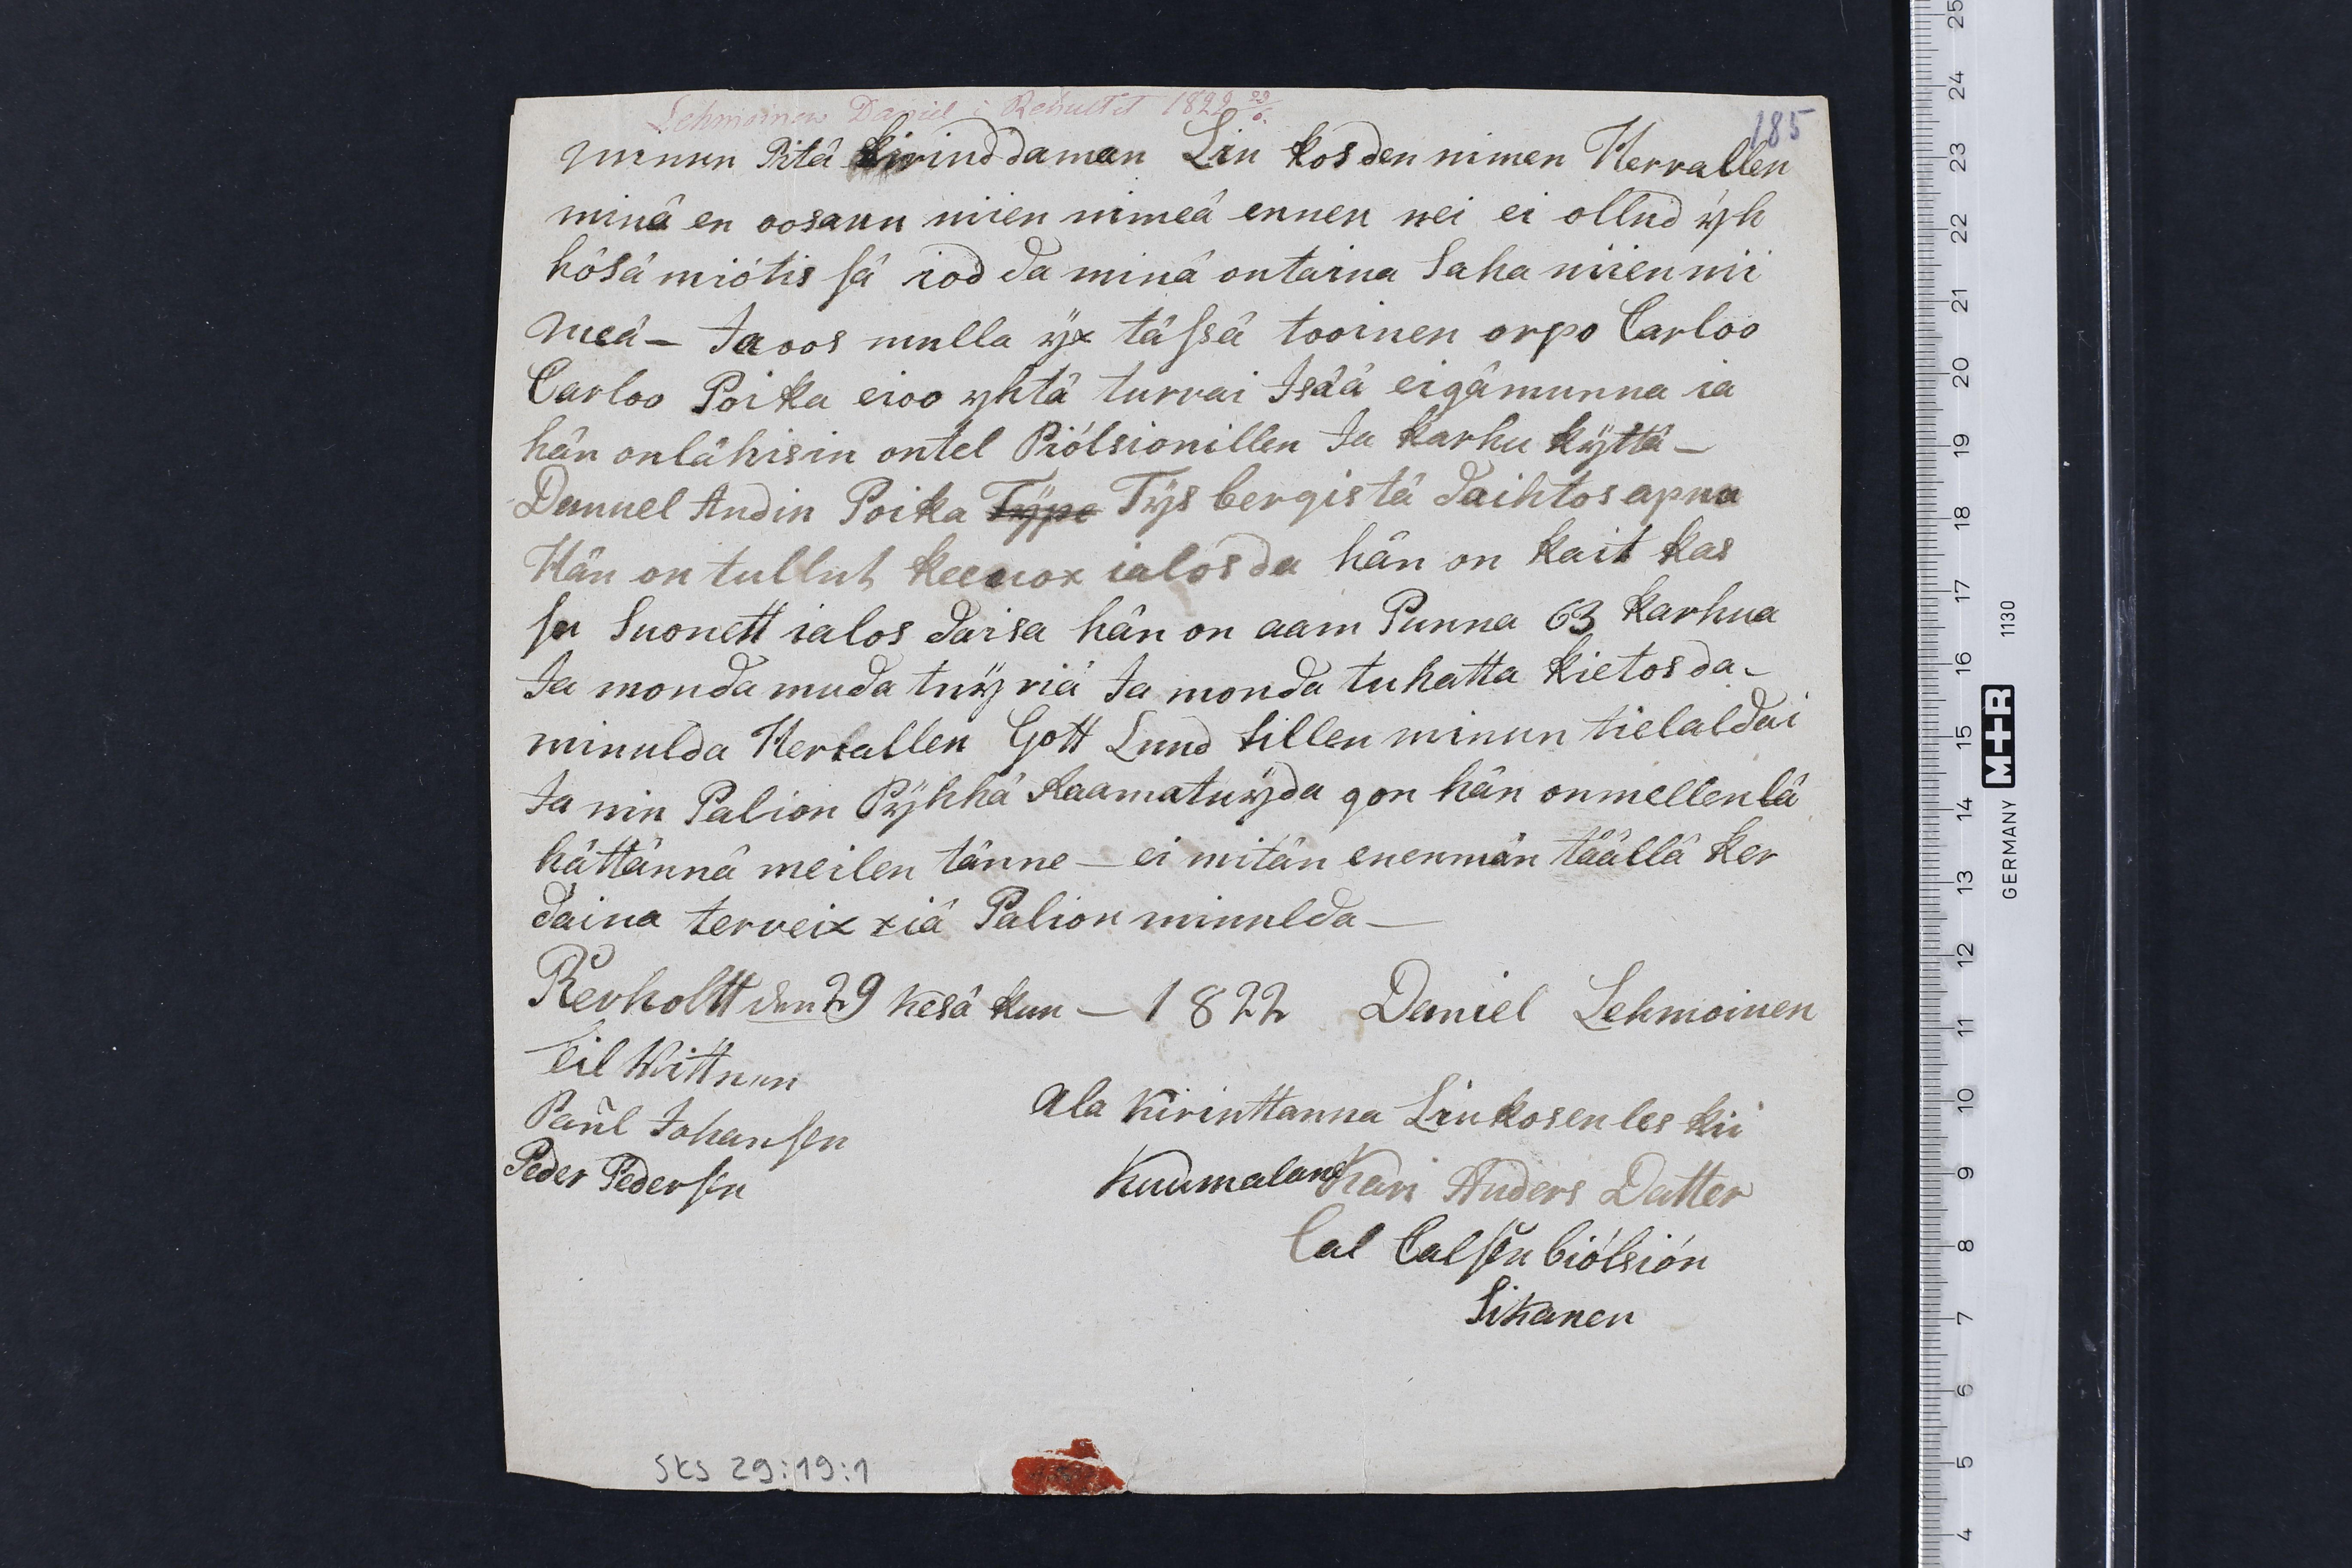 Lehmoinen Daniel i Rehultet 1822 29/6.
185
minun Pitä kirinddaman Lin kosden nimen Herrallen
minä en oosann niien nimeä ennen nei ei ollud ÿh
hösä miötis sä iod da minä ontaina Saha niien nii
meä – Ja oos mulla ÿx tässä tooinen orpo Carloo
Carloo Poika eioo yhtä turvai Isää eigämunna ia
hän onlähisin ontel Piölsionillen Ja karhu kÿttä –
Danuel Andin Poika Tÿpe Tÿs bergistä daihtos apua
Hän on tullut keeuox ialosda hän on kait kas
sa Suonett ialos daisa hän on aam Punna 63 karhua
Ja monda muda tuÿriä Ja monda tuhatta kietosda –
minulda Herrallen Gott Lund sillen minun tielaldai
Ja nin Palion Pÿhhä Raamatuÿda gon hän onmellenlä
hättännä meilen tänne – ei mitän enenmän täällä ker
daina terveix xiä Palion minulda –
Revholtt den 29 kesä kun – 1822 Daniel Lehmoinen
til Wittnun
Paul Johansen
Peder Pedersen
ala kirinttanna Linkosen les kii
kuumalans Kari Anders Datter
Cal Calsen biölsiön
Sikanen
SKS 29:19:1
25 24 23 22 21 20 19 18 17 16 15 14 13 12 11 10 9 8 7 6 5 4
GERMANY M+R 1130